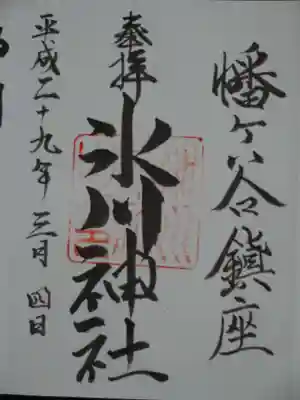 幡ヶ谷鎮座
奉拝
氷川神社
平成二十九年三月四日